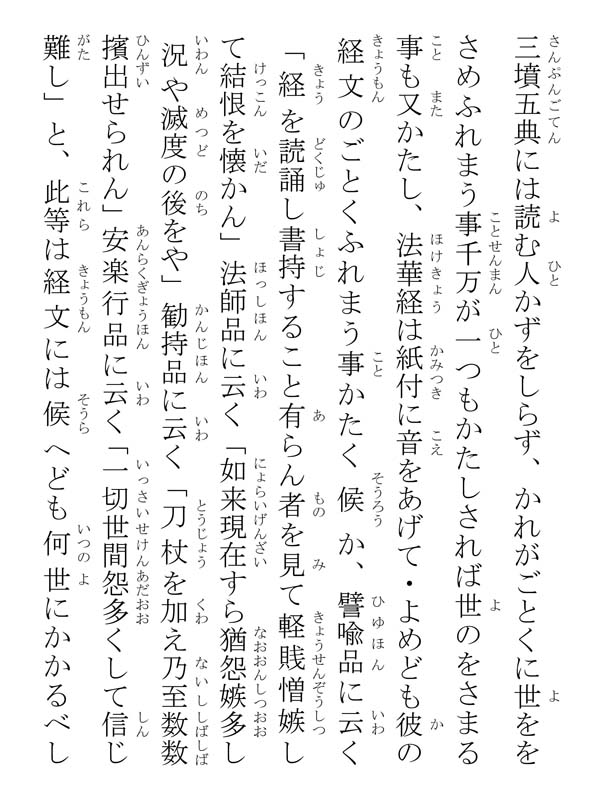 三墳五典には読む人かずをしらず、かれがごとくに世をを
さめふれまう事千万が一つもかたしされば世のをさまる
事も又かたし、法華経は紙付に音をあげて・よめども彼の
経文のごとくふれまう事かたく候か、譬喩品に云く
「経を読誦し書持すること有らん者を見て軽賎憎嫉し
て結恨を懐かん」法師品に云く「如来現在すら猶怨嫉多し
況や滅度の後をや」勧持品に云く「刀杖を加え乃至数数
擯出せられん」安楽行品に云く「一切世間怨多くして信じ
難し」と、此等は経文には候へども何世にかかるべし